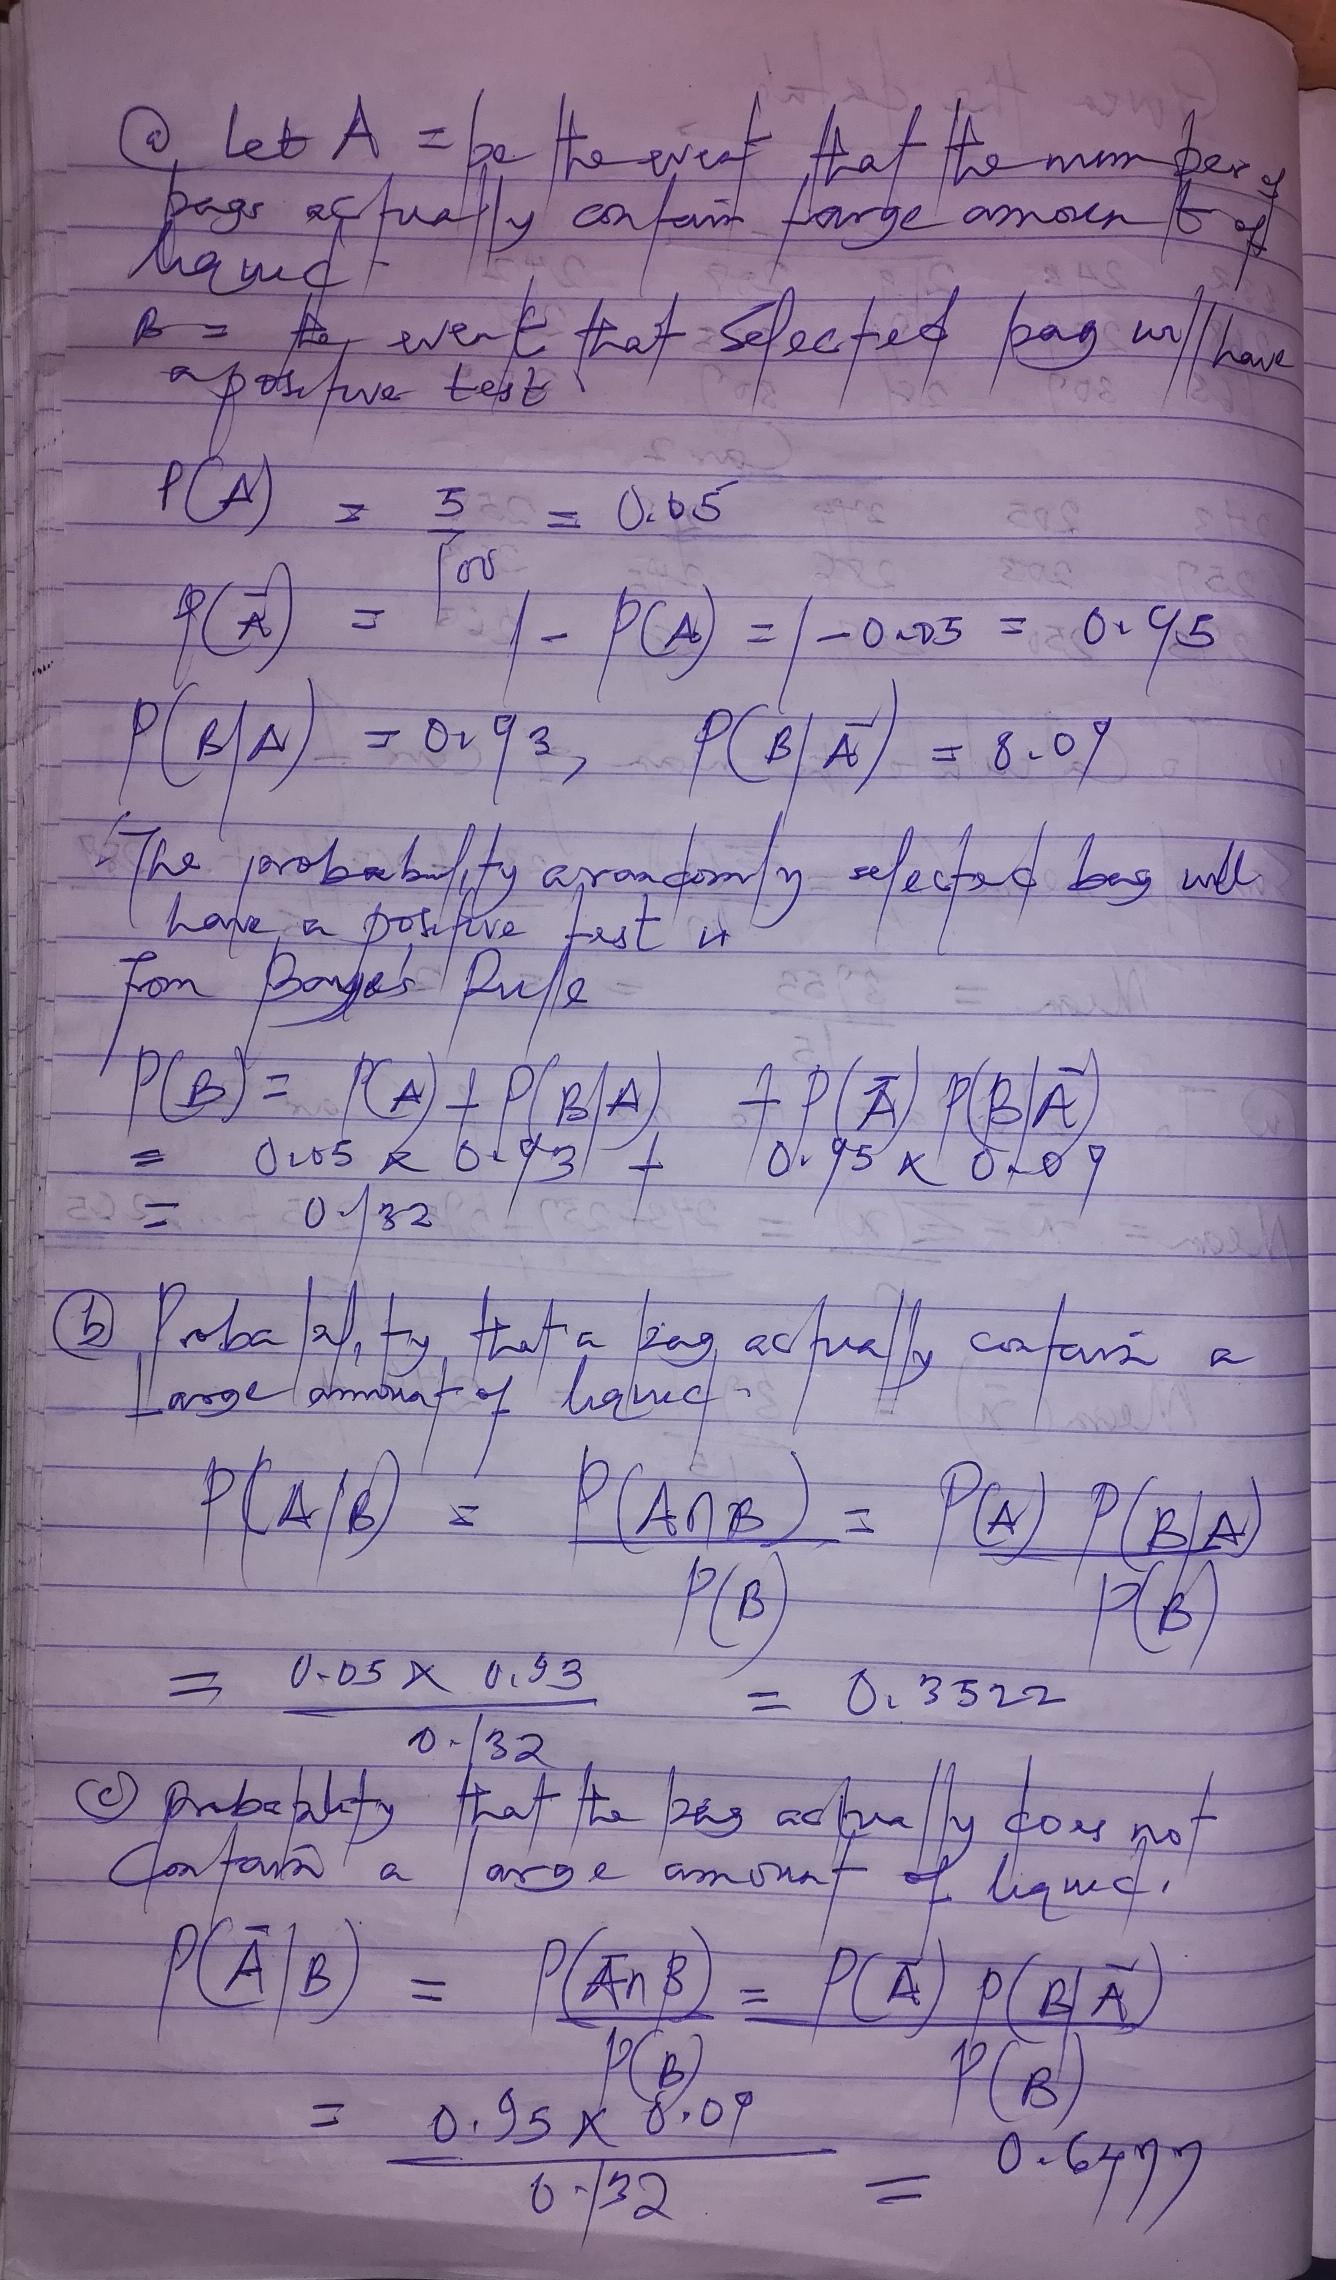 (a) Let A = be the event that the number of
bags actually contain large amount of
liquid.
B = the event that selected bag will have
a positive test.
P(A) = 5/100 = 0.05
P(Ā) = 1 - P(A) = 1 - 0.05 = 0.95
P(B|A) = 0.93, P(B|Ā) = 0.09
∴ The probability a randomly selected bag will
have a positive test is
From Baye's Rule
P(B) = P(A) + P(B|A) + P(Ā) P(B|Ā)
= 0.05 x 0.93 + 0.95 x 0.09
= 0.132
(b) Probability that a bag actually contain a
Large amount of liquid.
P(A|B) = P(A∩B)/P(B) = P(A) P(B|A)/P(B)
= 0.05 x 0.93/0.132 = 0.3522
(c) probability that the bag actually does not
contain a large amount of liquid.
P(Ā|B) = P(Ā∩B)/P(B) = P(Ā) P(B|Ā)/P(B)
= 0.95 x 0.09/0.132 = 0.6477